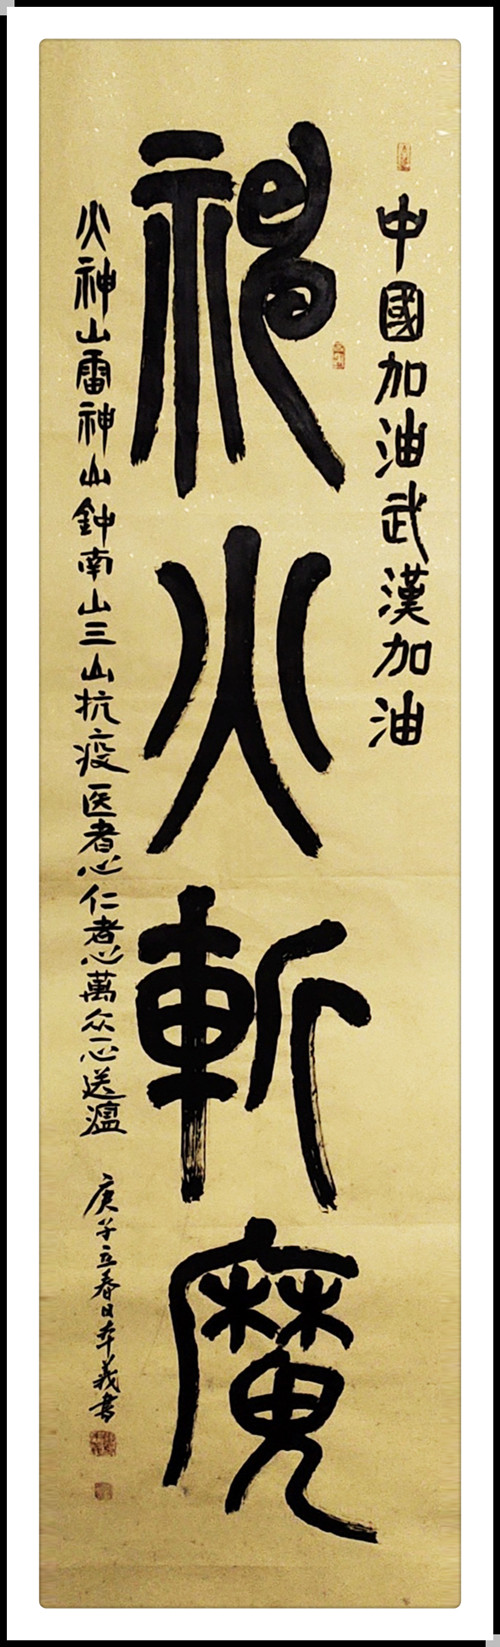 中國加油武漢加油
神火斬魔
火神山雷神山鈡南山三山抗疫医者心仁者心萬众一心送瘟
庚子立春日夲義書